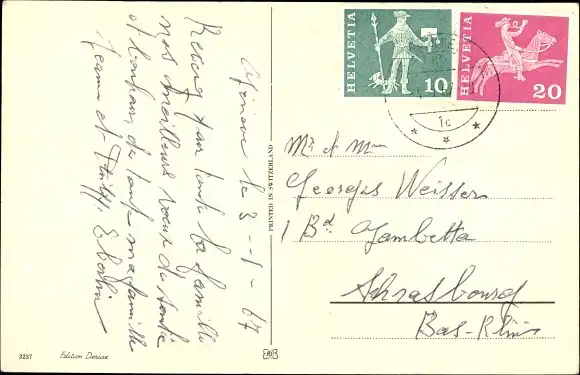 Genève le 3-1-67
Recevez pour toute la famille
nos meilleurs vœux de santé
et bonheur de toute ma famille
Jeanne et Philippe
PRINTED IN SWITZERLAND
HELVETIA
10
HELVETIA
20
1c
Mr et Mme
Georges Weisser
1 Bd Gambetta
Strasbourg
Bas-Rhin
3237
Edition Deriaz